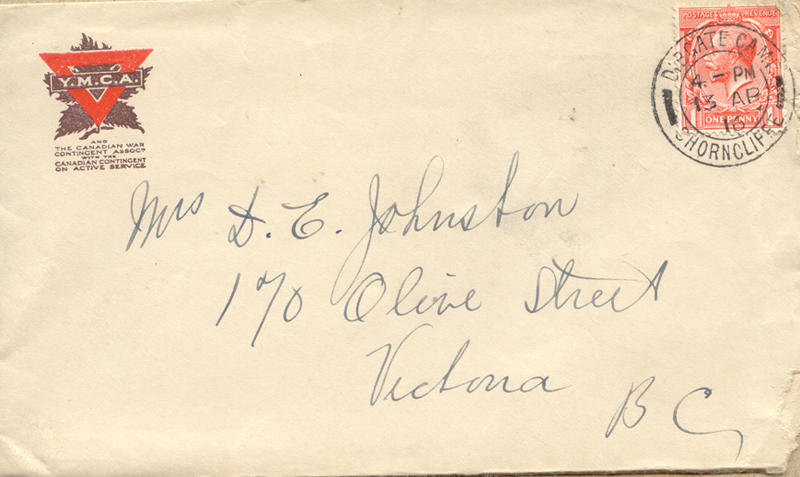 Y.M.C.A.
AND
THE CANADIAN WAR
CONTINGENT ASSOCN
WITH THE
CANADIAN CONTINGENT
ON ACTIVE SERVICE
POSTAGE REVENUE
ONE PENNY
DIBGATE CAMP
4 - PM
13 AP
16
SHORNCLIFFE
Mrs D. E. Johnston
170 Olive Street
Victoria
B C